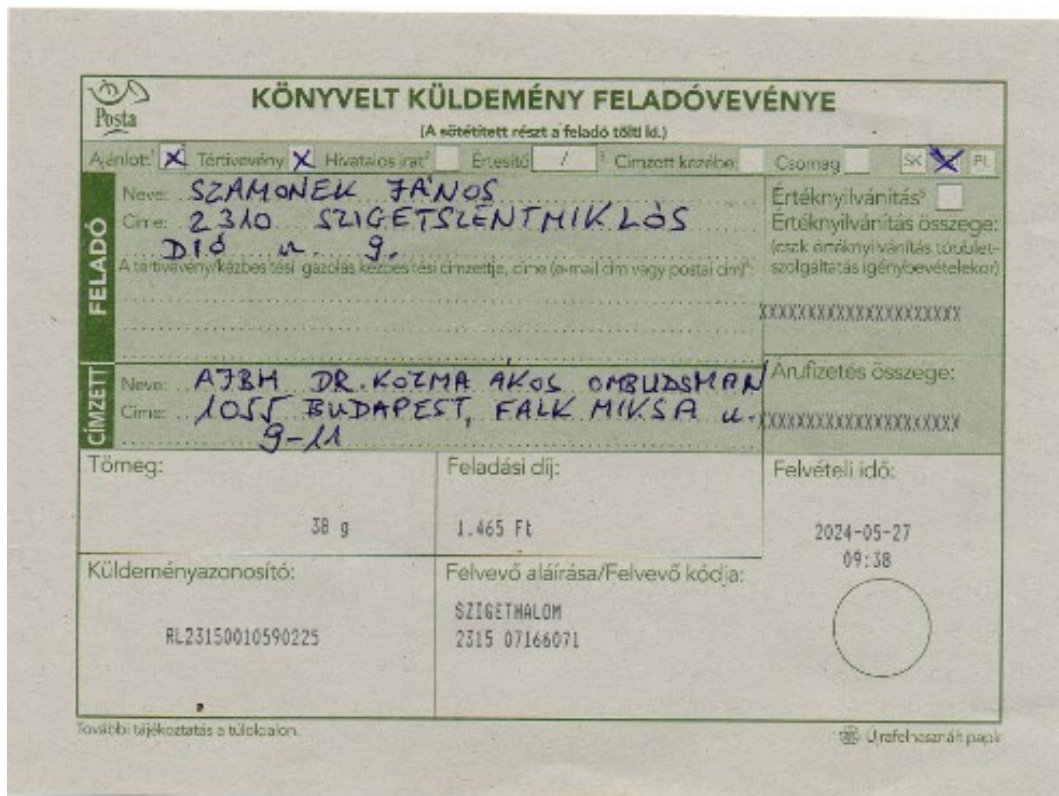 Posta
KÖNYVELT KÜLDEMÉNY FELADÓVEVÉNYE
(A sötétített részt a feladó tölti ki.)
Ajánlott:¹ X Tértivevény X Hivatalos irat² Értesítő / ³ Címzett kezébe Csomag SK PL
FELADÓ
Neve: SZAMONEK JÁNOS
Címe: 2310 SZIGETSZENTMIKLÓS
DIÓ u. 9.
A tértivevény/kézbesítési igazolás kézbesítési címzettje, címe (e-mail cím vagy postai cím)⁴:
Értéknyilvánítás⁵
Értéknyilvánítás összege:
(csak értéknyilvánítás többlet-
szolgáltatás igénybevételekor)
XXXXXXXXXXXXXXXXXXXXXX
CÍMZETT
Neve: AJBH DR. KOZMA ÁKOS OMBUDSMAN
Címe: 1055 BUDAPEST, FALK MIKSA u.
9-11
Árufizetés összege:
XXXXXXXXXXXXXXXXXXXXXX
Tömeg:
38 g
Feladási díj:
1.465 Ft
Felvételi idő:
2024-05-27
09:38
Küldeményazonosító:
RL23150010590225
Felvevő aláírása/Felvevő kódja:
SZIGETHALOM
2315 07166071
További tájékoztatás a túloldalon.
Újrafelhasznált papír